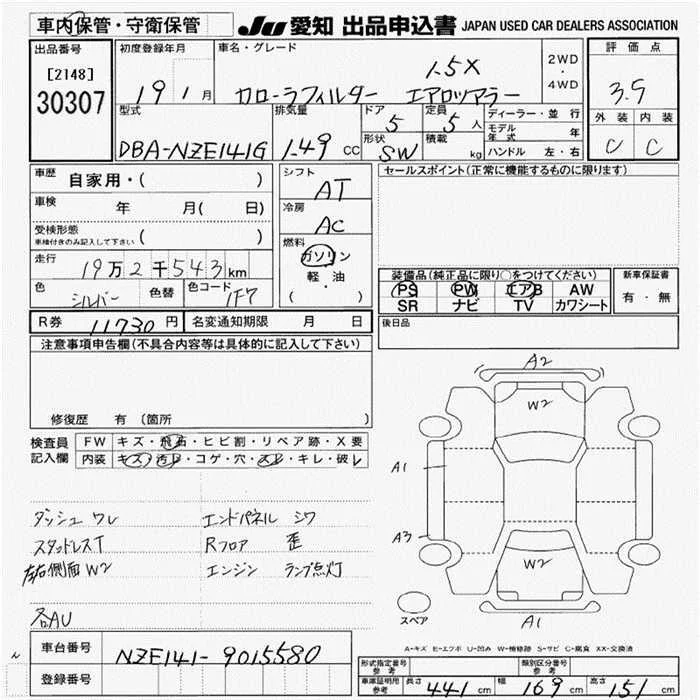 車内保管・守衛保管
JU 愛知 出品申込書 JAPAN USED CAR DEALERS ASSOCIATION
出品番号
[2148]
30307
初度登録年月
19 1月
車名・グレード
1.5X
カローラフィルター エアロツアラー
2WD
・
4WD
評価点
3.5
外装 内装
C C
型式
DBA-NZE141G
排気量
149 CC
ドア
5
形状
SW
定員
5人
積載
kg
ディーラー・並行
モデル年式 年
ハンドル 左・右
車歴 自家用・( )
車検 年 月( 日)
受検形態
車検付きのみ記入して下さい ( )
走行 19万2千543km
色 シルバー 色替 色コード 1F7
シフト
AT
冷房
AC
燃料
ガソリン
軽・油
( ・ )
セールスポイント(正常に機能するものに限ります)
装備品(純正品に限り○をつけてください)
PS PW エアB AW
SR ナビ TV カワシート
新車保証書
有・無
R券 11730円 名変通知期限 月 日
後日品
注意事項申告欄(不具合内容等は具体的に記入して下さい)
修復歴 有 (箇所
検査員記入欄
FW キズ・飛石・ヒビ割・リペア跡・X要
内装 キズ・汚レ・コゲ・穴・スレ・キレ・破レ
ダッシュ ワレ エンドパネル シワ
スタッドレスT Rフロア 歪
左右側面W2 エンジン ランプ点灯
各AU
A2
W2
A1
A3
W2
A1
スペア
A-キズ E-エクボ U-凹み W-補修跡 S-サビ C-腐食 XX-交換済
車台番号 NZE141-9015580
登録番号
型式指定番号参考 類別区分番号参考
車庫証明用参考 長さ 441cm 幅 169cm 高さ 151cm